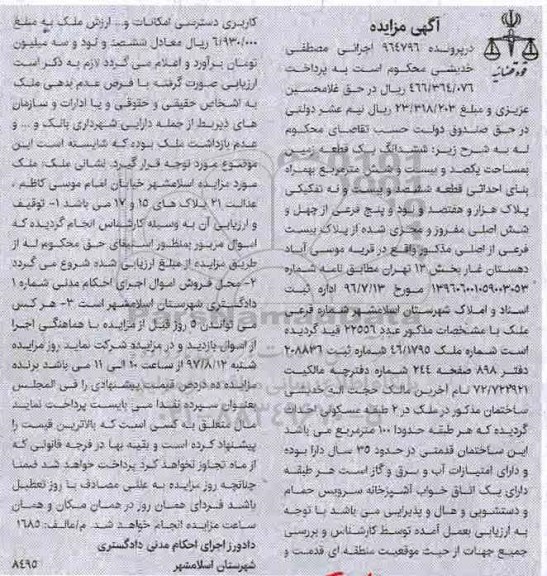 آگهی مزایده
قوه قضائیه
درپرونده ۹۶۴۷۹۶ اجرائی مصطفی
خدیشی محکوم است به پرداخت
۴۶۶/۳۶۴/۰۷۶ ریال در حق غلامحسین
عزیزی و مبلغ ۲۳/۳۱۸/۲۰۳ ریال نیم عشر دولتی
در حق صندوق دولت حسب تقاضای محکوم
له به شرح زیر: ششدانگ یک قطعه زمین
بمساحت یکصد و بیست و شش مترمربع بهمراه
بنای احداثی قطعه ششصد و بیست و نه تفکیکی
پلاک هزار و هفتصد و نود و پنج فرعی از چهل و
شش اصلی مفروز و مجزی شده از پلاک بیست
فرعی از اصلی مذکور واقع در قریه موسی آباد
دهستان غار بخش ۱۲ تهران مطابق نامه شماره
۱۳۹۶۰۶۰۰۱۰۵۹۰۰۳۰۵۳ مورخ ۹۶/۷/۱۳ اداره ثبت
اسناد و املاک شهرستان اسلامشهر شماره فرعی
ملک با مشخصات مذکور عدد ۲۲۵۵۶ قید گردیده
است شماره ملک ۴۶/۱۷۹۵ شماره ثبت ۲۰۸۸۳۶
دفتر ۸۹۸ صفحه ۲۴۴ شماره دفترچه مالکیت
۷۲/۷۲۴۹۲۱ نام آخرین مالک حجت اله خدیشی
ساختمان مذکور در ملک در ۲ طبقه مسکونی احداث
گردیده که هر طبقه حدودا ۱۰۰ مترمربع می باشد
این ساختمان قدمتی در حدود ۳۵ سال دارا بوده
و دارای امتیازات آب و برق و گاز است هر طبقه
دارای یک اتاق خواب آشپزخانه سرویس حمام
و دستشویی و هال و پذیرایی می باشد با توجه
به ارزیابی بعمل آمده توسط کارشناس و بررسی
جمیع جهات از حیث موقعیت منطقه ای قدمت و
کاربری دسترسی امکانات و.. ارزش ملک به مبلغ
۶/۹۳۰/۰۰۰ ریال معادل ششصد و نود و سه میلیون
تومان برآورد و اعلام می گردد لازم به ذکر است
ارزیابی صورت گرفته با فرض عدم بدهی ملک
به اشخاص حقیقی و حقوقی و یا ادارات و سازمان
های ذیربط از جمله دارایی شهرداری بانک و ... و
عدم بازداشت ملک بوده که شایسته است این
موضوع مورد توجه قرار گیرد. نشانی ملک: ملک
مورد مزایده اسلامشهر خیابان امام موسی کاظم ،
عدالت ۲۱ پلاک های ۱۵ و ۱۷ می باشد ۱- توقیف
و ارزیابی آن به وسیله کارشناس انجام گردیده که
اموال مزبور بمنظور استیفای حق محکوم له از
طریق مزایده از مبلغ ارزیابی شده شروع می گردد
۲- محل فروش اموال اجرای احکام مدنی شماره ۱
دادگستری شهرستان اسلامشهر است ۳- هر کس
می تواندن ۵ روز قبل از مزایده با هماهنگی اجرا
از اموال بازدید و در مزایده شرکت نماید روز مزایده
شنبه ۹۷/۸/۱۲ از ساعت ۱۰ الی ۱۱ می باشد برنده
مزایده ده درض قیمت پیشنهادی را فی المجلس
بعنوان سپرده نقدا می بایست پرداخت نماید
مال متعلق به کسی است که بالاترین قیمت را
پیشنهاد کرده است و بقیه بها در فرجه قانونی که
از ماه تجاوز نخواهد کرد پرداخت خواهد شد ضمنا
چنانچه روز مزایده به عللی مصادف با روز تعطیل
باشد فردای همان روز در همان مکان و همان
ساعت مزایده انجام خواهد شد. م/مالف: ۱۶۸۵
دادورز اجرای احکام مدنی دادگستری
شهرستان اسلامشهر ۸۴۹۵